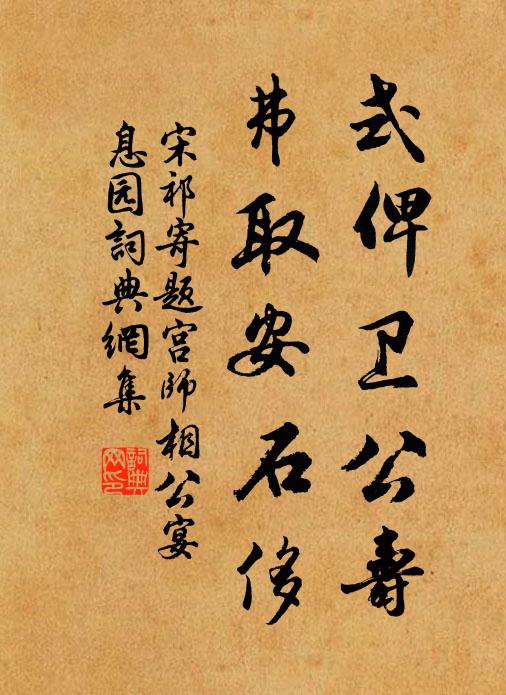 式俾卫公壽
弗取安石侈
宋祁寄题宫師相公宴
息园詞典網集
詞典網印